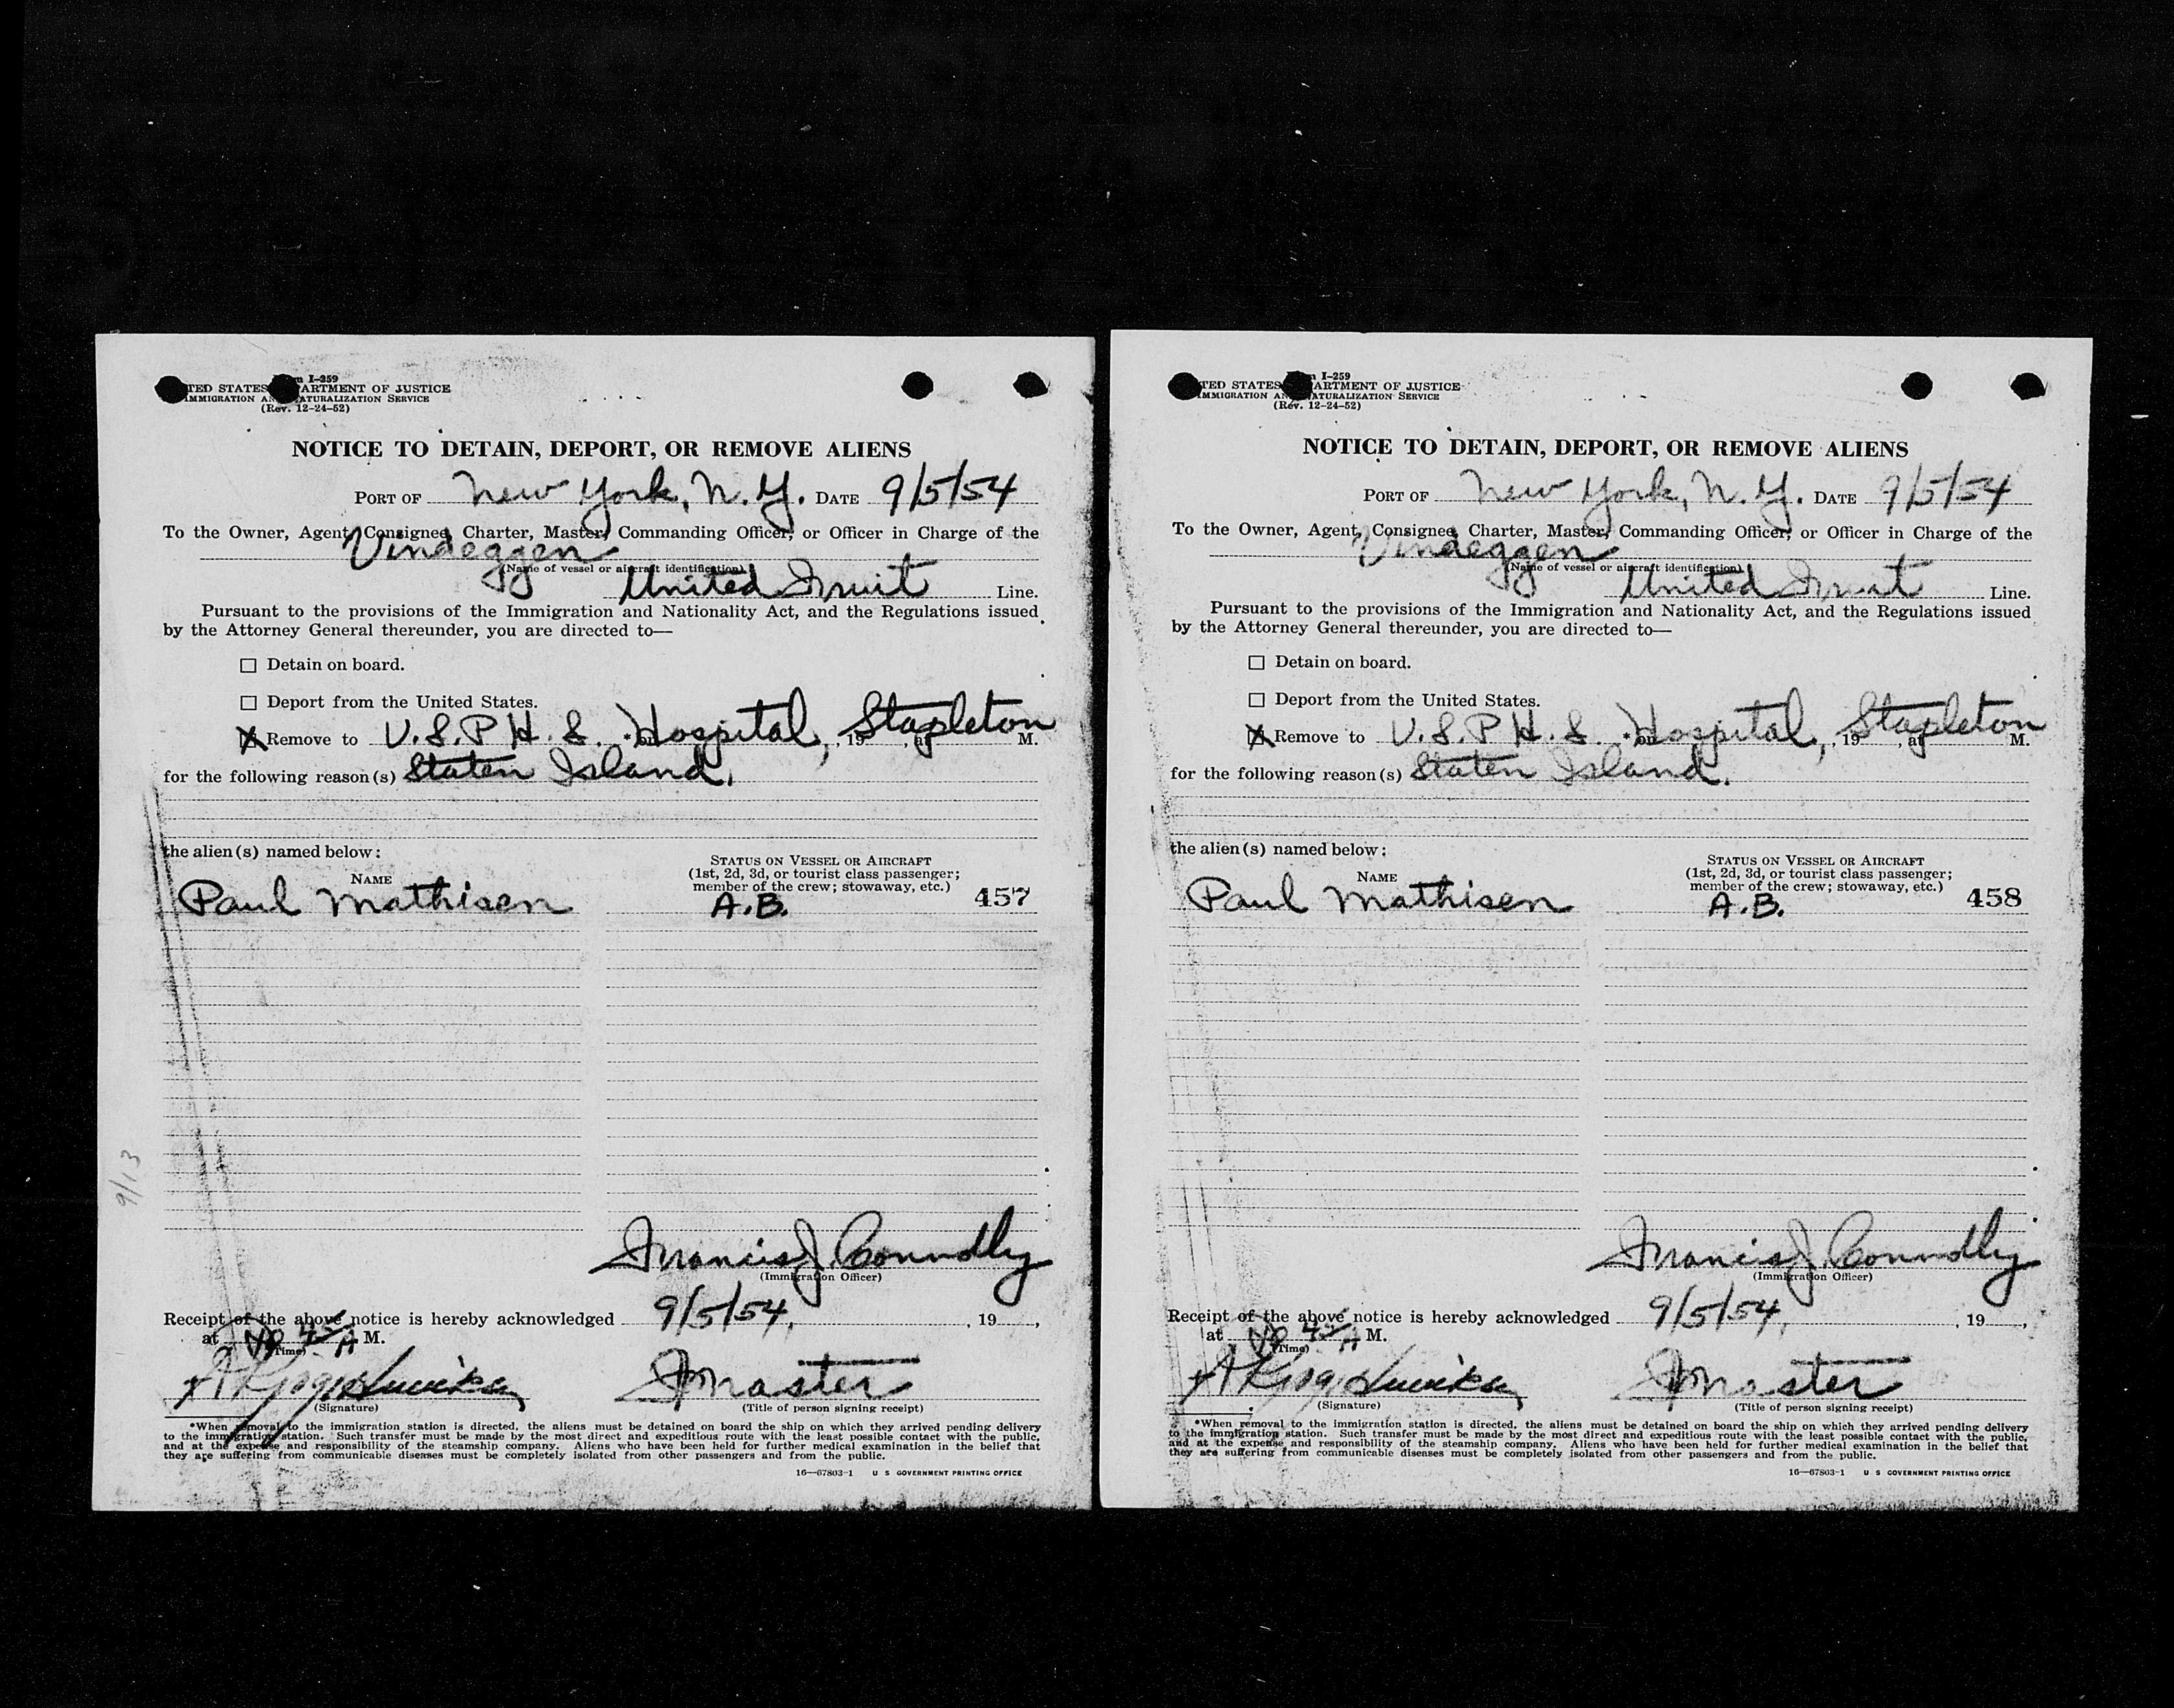 m I-259
TED STATES ARTMENT OF JUSTICE
IMMIGRATION AN ATURALIZATION SERVICE
(Rev. 12-24-52)
NOTICE TO DETAIN, DEPORT, OR REMOVE ALIENS
PORT OF New York, N.Y. DATE 9/5/54
To the Owner, Agent, Consignee, Charter, Master, Commanding Officer, or Officer in Charge of the
Vindeggen
(Name of vessel or aircraft identification)
United Fruit Line.
Pursuant to the provisions of the Immigration and Nationality Act, and the Regulations issued
by the Attorney General thereunder, you are directed to—
Detain on board.
Deport from the United States.
X Remove to U.S.P.H.S. *on Hospital, 19 , at Stapleton M.
for the following reason(s) Staten Island.
the alien(s) named below:
STATUS ON VESSEL OR AIRCRAFT
(1st, 2d, 3d, or tourist class passenger;
NAME
member of the crew; stowaway, etc.)
Paul Mathisen A.B. 457
9/13
Francis J. Connolly
(Immigration Officer)
Receipt of the above notice is hereby acknowledged 9/5/54, , 19 ,
at A M.
(Time)
Master
(Signature) (Title of person signing receipt)
*When removal to the immigration station is directed, the aliens must be detained on board the ship on which they arrived pending delivery
to the immigration station. Such transfer must be made by the most direct and expeditious route with the least possible contact with the public,
and at the expense and responsibility of the steamship company. Aliens who have been held for further medical examination in the belief that
they are suffering from communicable diseases must be completely isolated from other passengers and from the public.
16—67803-1 U S GOVERNMENT PRINTING OFFICE
m I-259
TED STATES ARTMENT OF JUSTICE
IMMIGRATION AN ATURALIZATION SERVICE
(Rev. 12-24-52)
NOTICE TO DETAIN, DEPORT, OR REMOVE ALIENS
PORT OF New York, N.Y. DATE 9/5/54
To the Owner, Agent, Consignee, Charter, Master, Commanding Officer, or Officer in Charge of the
Vindeggen
(Name of vessel or aircraft identification)
United Fruit Line.
Pursuant to the provisions of the Immigration and Nationality Act, and the Regulations issued
by the Attorney General thereunder, you are directed to—
Detain on board.
Deport from the United States.
X Remove to U.S.P.H.S. *on Hospital, 19 , at Stapleton M.
for the following reason(s) Staten Island.
the alien(s) named below:
STATUS ON VESSEL OR AIRCRAFT
(1st, 2d, 3d, or tourist class passenger;
NAME
member of the crew; stowaway, etc.)
Paul Mathisen A.B. 458
Francis J. Connolly
(Immigration Officer)
Receipt of the above notice is hereby acknowledged 9/5/54, , 19 ,
at A M.
(Time)
Master
(Signature) (Title of person signing receipt)
*When removal to the immigration station is directed, the aliens must be detained on board the ship on which they arrived pending delivery
to the immigration station. Such transfer must be made by the most direct and expeditious route with the least possible contact with the public,
and at the expense and responsibility of the steamship company. Aliens who have been held for further medical examination in the belief that
they are suffering from communicable diseases must be completely isolated from other passengers and from the public.
16—67803-1 U S GOVERNMENT PRINTING OFFICE